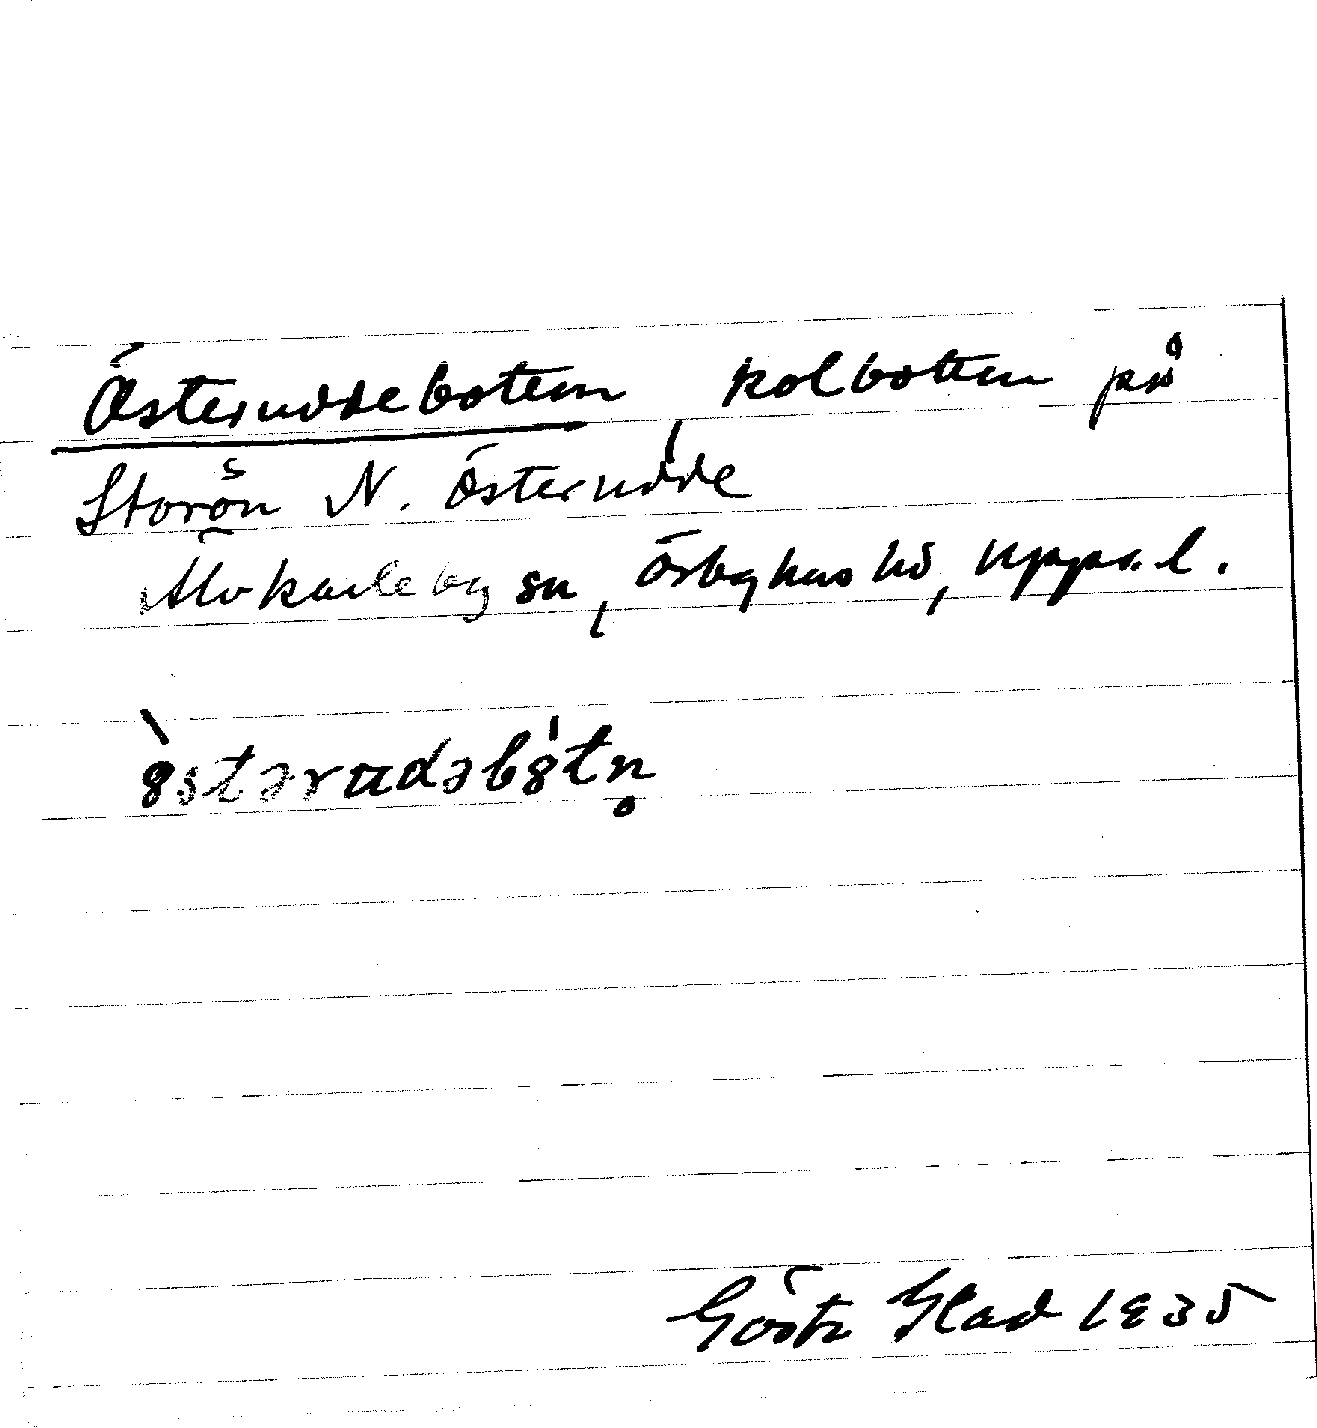 Österuddebotten, kolbotten på
Storön N. Österudde
Älvkarleby sn, Örbyhus hd, Upps. l.
ö̀stərudəbòtn̥
Gösta Glad 1935